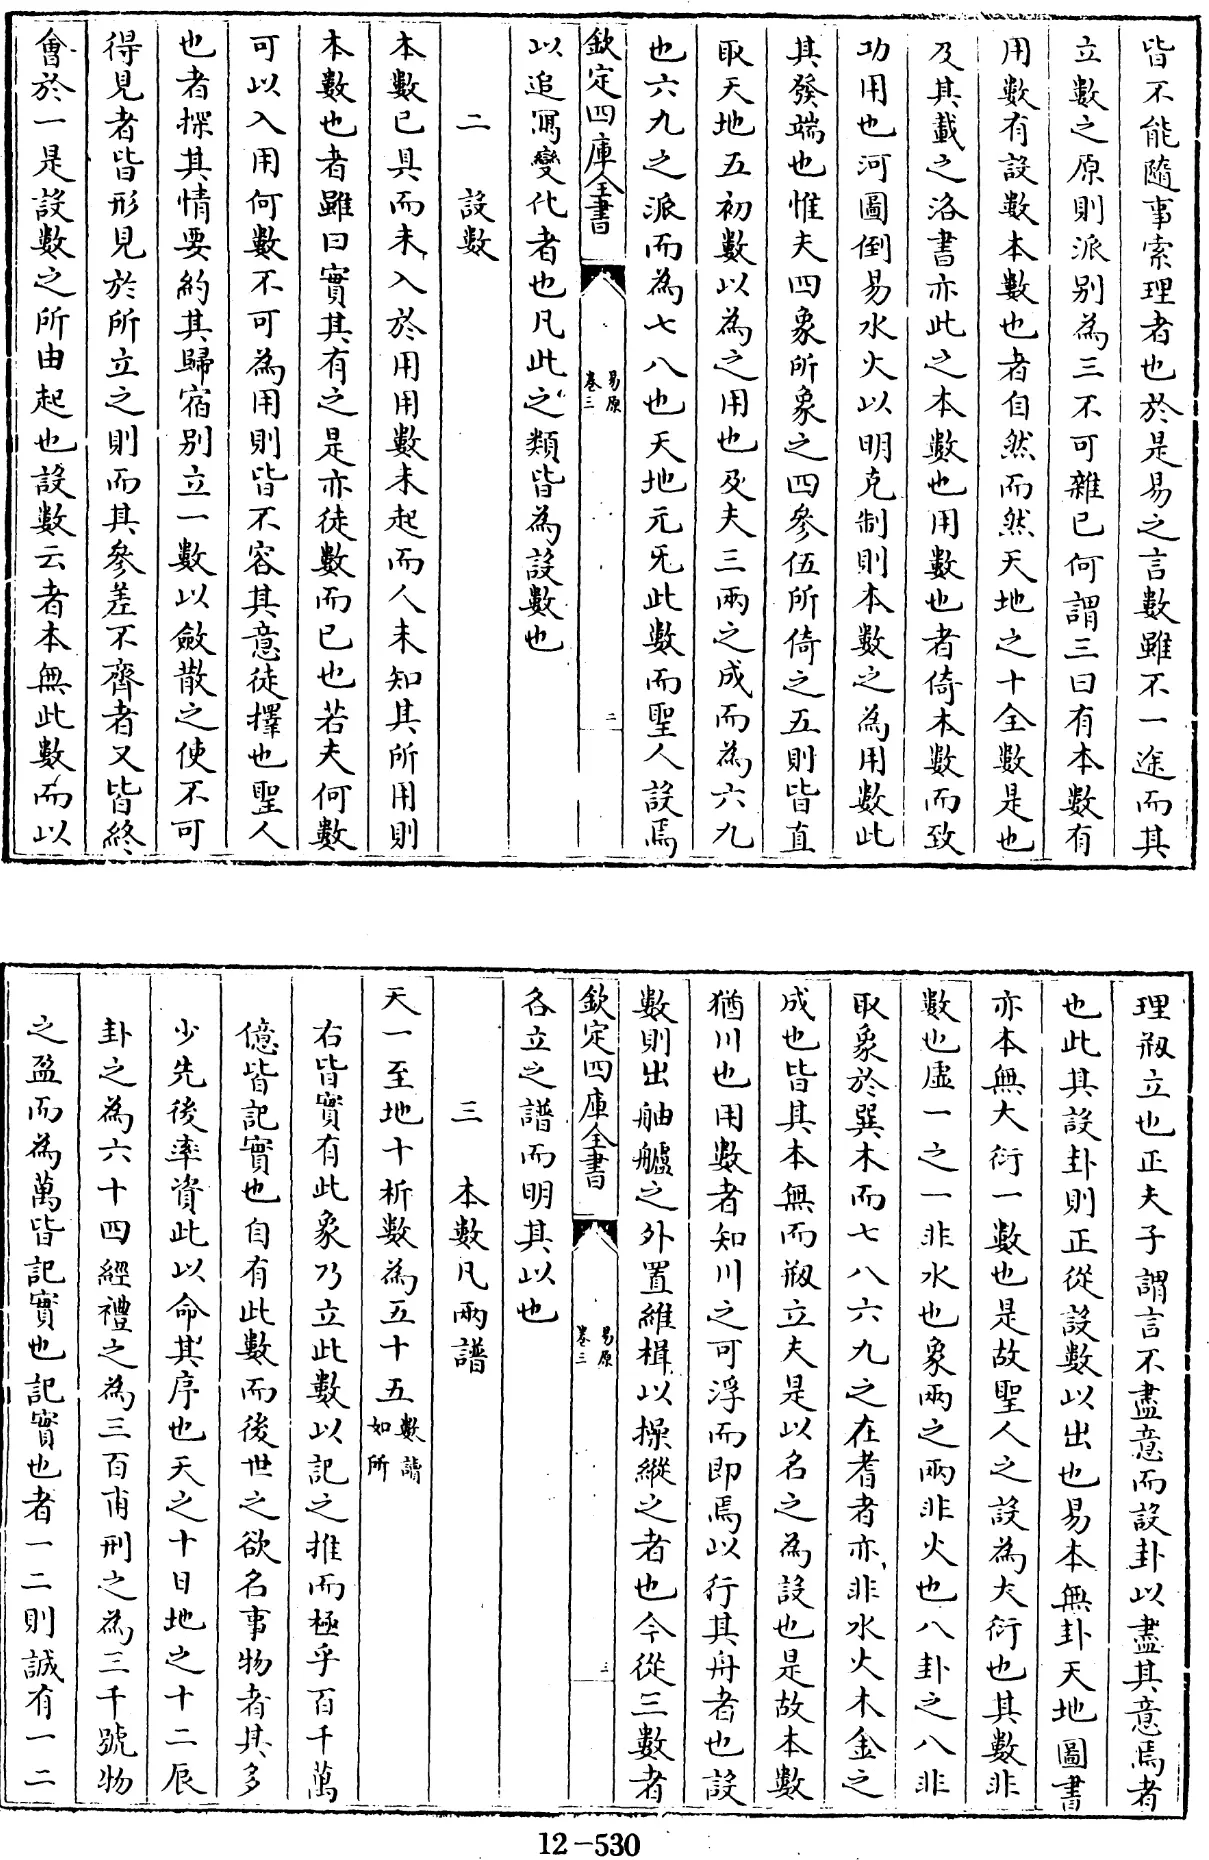 皆不能隨事索理者也於是易之言數雖不一途而其
立數之原則派别為三不可雜已何謂三曰有本數有
用數有設數本數也者自然而然天地之十全數是也
及其載之洛書亦此之本數也用數也者倚本數而致
功用也河圖倒易水火以明克制則本數之為用數此
其發端也惟夫四象所象之四參伍所倚之五則皆直
取天地五初數以為之用也及夫三兩之成而為六九
也六九之派而為七八也天地元无此數而聖人設焉
欽定四庫全書
易原
卷三
二
以追寫變化者也凡此之類皆為設數也
二 設數
本數已具而未入於用用數未起而人未知其所用則
本數也者雖曰實其有之是亦徒數而已也若夫何數
可以入用何數不可為用則皆不容其意徒擇也聖人
也者探其情要約其歸宿别立一數以斂散之使不可
得見者皆形見於所立之則而其參差不齊者又皆終
會於一是設數之所由起也設數云者本無此數而以
理剏立也正夫子謂言不盡意而設卦以盡其意焉者
也此其設卦則正從設數以出也易本無卦天地圖書
亦本無大衍一數也是故聖人之設為大衍也其數非
數也虛一之一非水也象兩之兩非火也八卦之八非
取象於巽木而七八六九之在耆者亦非水火木金之
成也皆其本無而剏立夫是以名之為設也是故本數
猶川也用數者知川之可浮而即焉以行其舟者也設
數則出舳艫之外置維楫以操縱之者也今從三數者
欽定四庫全書
易原
卷三
三
各立之譜而明其以也
三 本數凡兩譜
天一至地十析數為五十五數讀如所
右皆實有此象乃立此數以記之推而極乎百千萬
億皆記實也自有此數而後世之欲名事物者其多
少先後率資此以命其序也天之十日地之十二辰
卦之為六十四經禮之為三百甫刑之為三千號物
之盈而為萬皆記實也記實也者一二則誠有一二
12-530